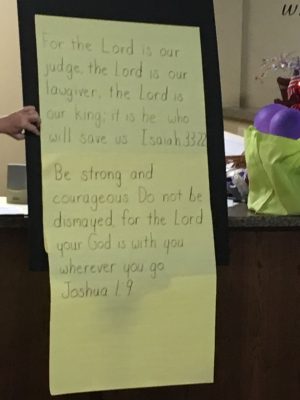 For the Lord is our
judge, the Lord is our
lawgiver, the Lord is
our king; it is he who
will save us Isaiah 33:22
Be strong and
courageous Do not be
dismayed, for the Lord
your God is with you
wherever you go
Joshua 1:9